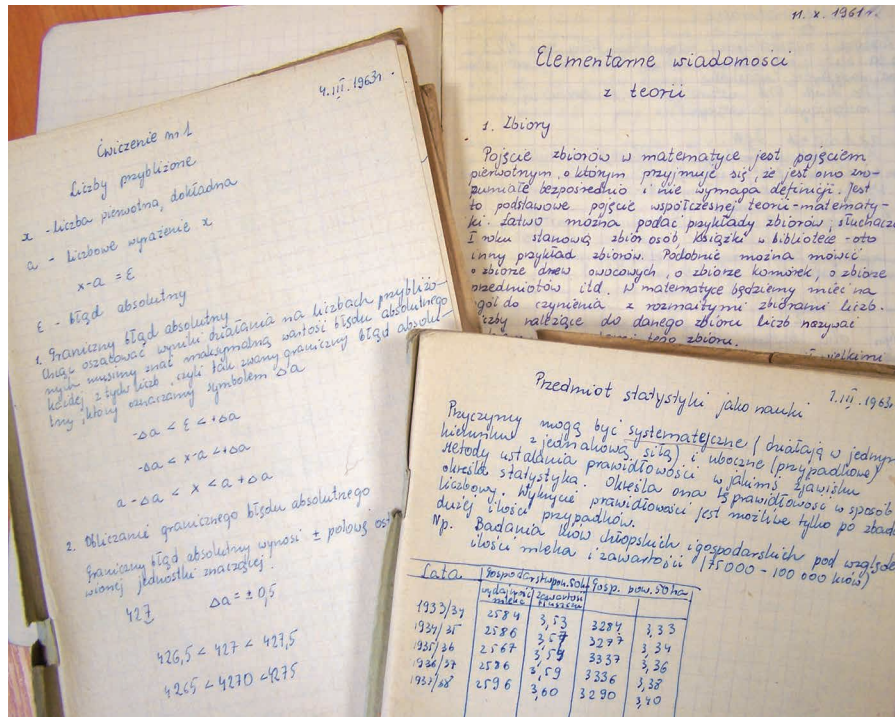 4.III.1963r.
Ćwiczenie nr 1
Liczby przybliżone
x - liczba pierwotna, dokładna
a - liczbowe wyrażenie x
x-a = ε
ε - błąd absolutny
1. Graniczny błąd absolutny
Chcąc oszacować wyniki działania na liczbach przybliżo-
nych musimy znać maksymalną wartość błędu absolutnego
każdej z tych liczb, czyli tak zwany graniczny błąd absolu-
tny, który oznaczamy symbolem Δa
-Δa < ε < +Δa
-Δa < x-a < +Δa
a - Δa < x < a + Δa
2. Obliczanie granicznego błędu absolutnego
Graniczny błąd absolutny wynosi ± połowę ost
wionej jednostki znaczącej.
427 Δa = ± 0,5
426,5 < 427 < 427,5
4265 < 4270 < 4275
11. X. 1961r.
Elementarne wiadomości
z teorii
1. Zbiory
Pojęcie zbiorów w matematyce jest pojęciem
pierwotnym, o którym przyjmuje się, że jest ono zro-
zumiałe bezpośrednio i nie wymaga definicji. Jest
to podstawowe pojęcie współczesnej teorii-matematy-
ki. Łatwo można podać przykłady zbiorów, słuchacze
I roku stanową zbiór osób, książki w bibliotece - oto
inny przykład zbiorów. Podobnie można mówić
o zbiorze drzew owocowych, o zbiorze komórek, o zbiorze
przedmiotów itd. W matematyce będziemy mieć na
ogół do czynienia z rozmaitymi zbiorami liczb.
liczby należące do danego zbioru liczb nazywać
tego zbioru.
wielkimi
Przedmiot statystyki jako nauki 7.III.1963r
Przyczyny mogą być systematyczne (działają w jednym
kierunku z jednakową siłą) i uboczne (przypadkowe)
Metody ustalania prawidłowości w jakimś zjawisku
określa statystyka. Określa ona tę prawidłowość w sposób
liczbowy. Wykrycie prawidłowości jest możliwe tylko po zbada
dużej ilości przypadków.
Np. Badania krów chłopskich i gospodarskich pod względe
ilości mleka i zawartości (75 000 - 100 000 krów)
Lata Gospodarstwo pow. 50ha Gosp. pow. 50ha
wydajność mleka zawartość tłuszczu
1933/34 2584 3,53 3284 3,33
1934/35 2586 3,57 3277 3,34
1935/36 2567 3,59 3337 3,36
1936/37 2586 3,59 3336 3,38
1937/38 2596 3,60 3290 3,40